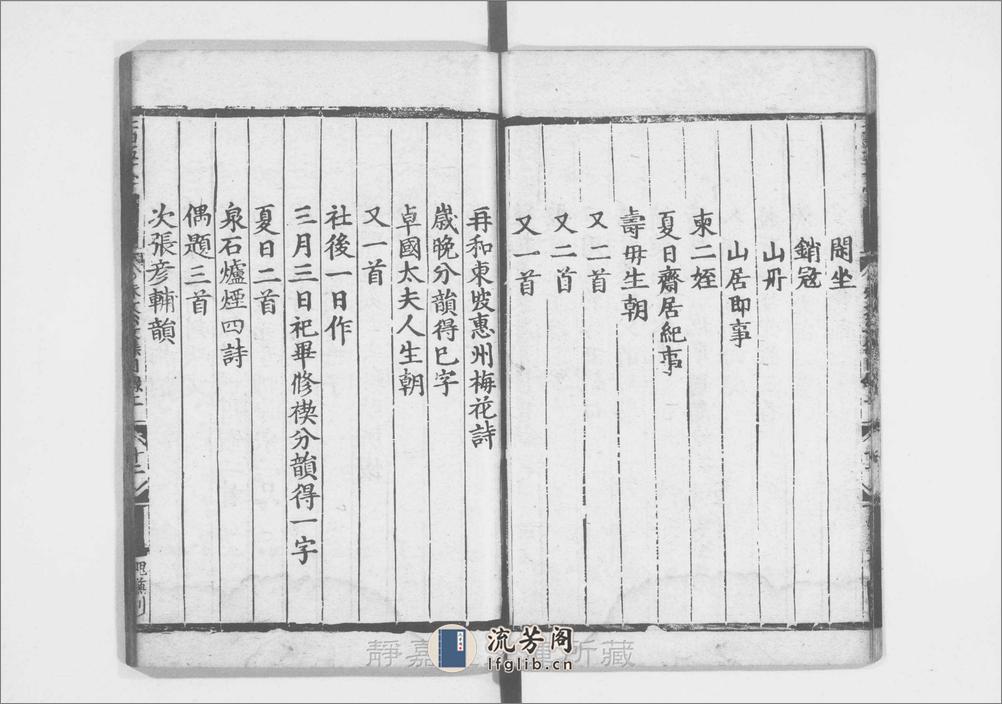 閒坐
銷寇
山丹
山居即事
柬二姪
夏日齋居紀事
壽母生朝
又二首
又二首
又一首
再和東坡惠州梅花詩
歲晚分韻得巳字
卓國太夫人生朝
又一首
社後一日作
三月三日祀畢修禊分韻得一字
夏日二首
泉石爐煙四詩
偶題三首
次張彦輔韻
流芳阁
lfglib.cn